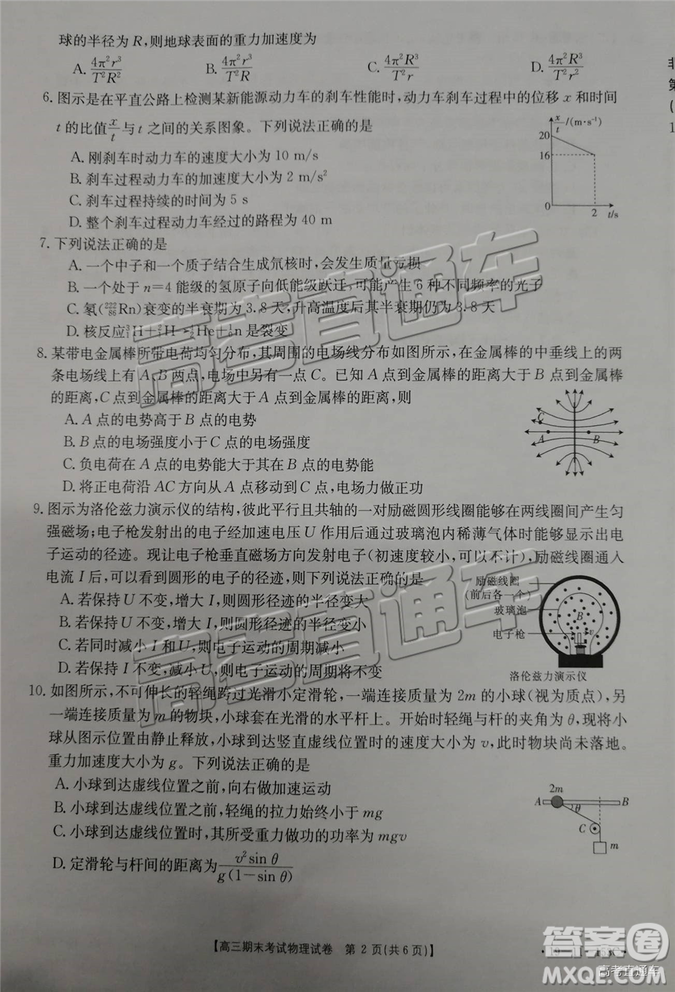 球的半径为 R,则地球表面的重力加速度为
A. 4π²r³/T²R² B. 4π²r³/T²R C. 4π²R³/T²r D. 4π²R³/T²r²
6. 图示是在平直公路上检测某新能源动力车的刹车性能时,动力车刹车过程中的位移 x 和时间
t 的比值 x/t 与 t 之间的关系图象。下列说法正确的是
A. 刚刹车时动力车的速度大小为 10 m/s
B. 刹车过程动力车的加速度大小为 2 m/s²
C. 刹车过程持续的时间为 5 s
D. 整个刹车过程动力车经过的路程为 40 m
x/t /(m·s⁻¹)
20
16
0 2 t/s
7. 下列说法正确的是
A. 一个中子和一个质子结合生成氘核时,会产生质量亏损
B. 一个处于 n=4 能级的氢原子向低能级跃迁,可能产生 6 种不同频率的光子
C. 氡(²²²₈₆Rn)衰变的半衰期为 3.8 天,升高温度后其半衰期仍为 3.8 天
D. 核反应²₁H+³₁H→⁴₂He+¹₀n 是裂变
8. 某带电金属棒所带电荷均匀分布,其周围的电场线分布如图所示,在金属棒的中垂线上的两
条电场线上有 A、B 两点,电场中另有一点 C。已知 A 点到金属棒的距离大于 B 点到金属棒
的距离,C 点到金属棒的距离大于 A 点到金属棒的距离,则
A. A 点的电势高于 B 点的电势
B. A 点的电场强度小于 C 点的电场强度
C. 负电荷在 A 点的电势能大于在 B 点的电势能
D. 将正电荷沿 AC 方向从 A 点移动到 C 点,电场力做正功
C
A B
9. 图示为洛伦兹力演示仪的结构,彼此平行且共轴的一对励磁圆形线圈能够在两线圈间产生匀
强磁场;电子枪发射出的电子经加速电压 U 作用后通过玻璃泡内稀薄气体时能够显示出
电子运动的径迹。现让电子枪垂直磁场方向发射电子(初速度较小,可以不计),励磁线圈通入
电流 I 后,可以看到圆形的电子的径迹,则下列说法正确的是
A. 若保持 U 不变,增大 I,则圆形径迹的半径变大
B. 若保持 U 不变,增大 I,则圆形径迹的半径变小
C. 若同时减小 I 和 U,则电子运动的周期减小
D. 若保持 I 不变,减小 U,则电子运动的周期将不变
励磁线圈
(前后各一个)
玻璃泡
电子枪
洛伦兹力演示仪
10. 如图所示,不可伸长的轻绳跨过光滑小定滑轮,一端连接质量为 2m 的小球(视为质点),另
一端连接质量为 m 的物块,小球套在光滑的水平杆上。开始时轻绳与杆的夹角为 θ,现将
小球从图示位置由静止释放,小球到达竖直虚线位置时的速度大小为 v,此时物块尚未落地。
重力加速度大小为 g。下列说法正确的是
A. 小球到达虚线位置之前,向右做加速运动
B. 小球到达虚线位置之前,轻绳的拉力始终小于 mg
C. 小球到达虚线位置时,重力对物块做功的功率为 mgv
D. 定滑轮与杆间的距离为 v²sin θ/g(1-sin θ)
2m
A B
θ
C
m
【高三期末考试物理试卷 第 2 页(共 6 页)】
高考直通车
高考直通车
高考直通车
答案圈
MXQE.COM